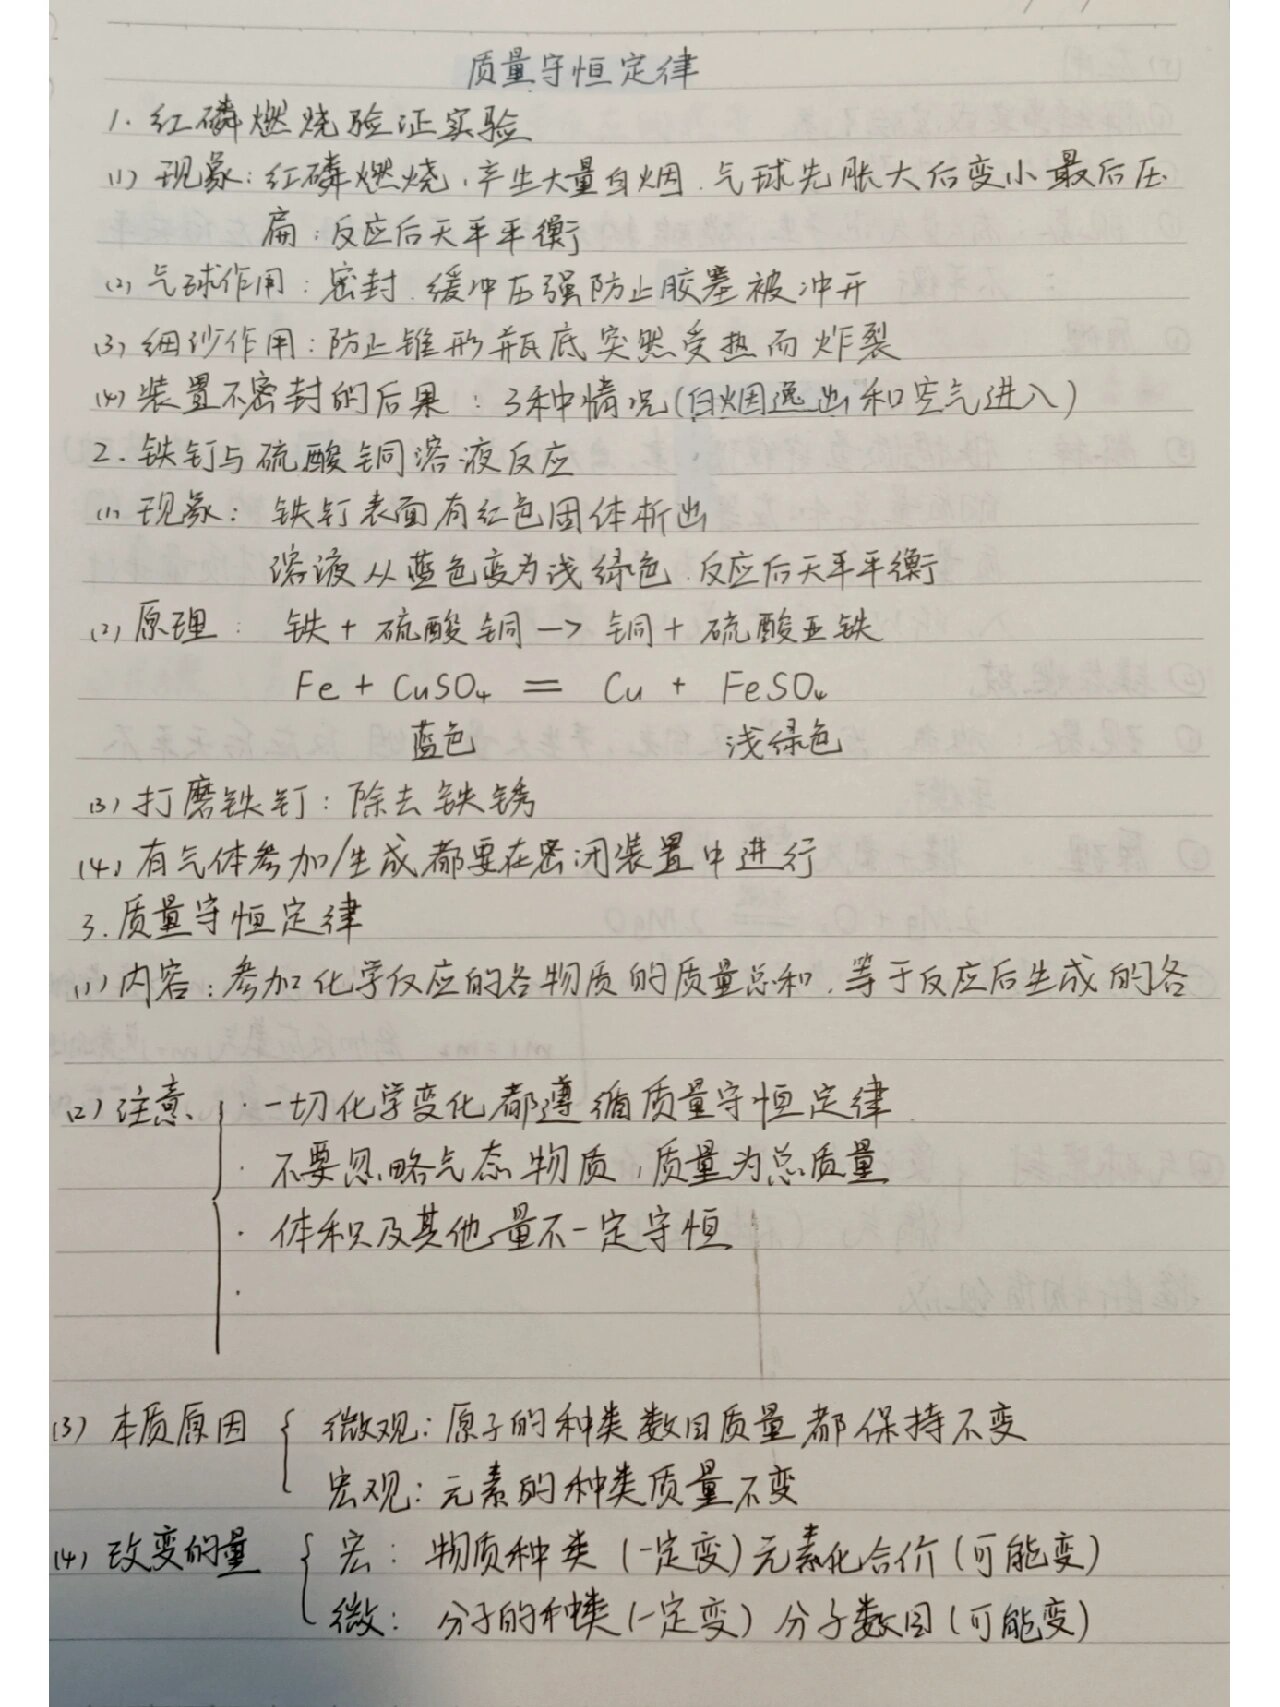 质量守恒定律
1. 红磷燃烧验证实验
(1) 现象：红磷燃烧，产生大量白烟，气球先胀大后变小最后压
扁；反应后天平平衡
(2) 气球作用：密封，缓冲压强防止胶塞被冲开
(3) 细沙作用：防止锥形瓶底突然受热而炸裂
(4) 装置不密封的后果：3种情况(白烟逸出和空气进入)
2. 铁钉与硫酸铜溶液反应
(1) 现象：铁钉表面有红色固体析出
溶液从蓝色变为浅绿色，反应后天平平衡
(2) 原理：铁 + 硫酸铜 → 铜 + 硫酸亚铁
Fe + CuSO₄ = Cu + FeSO₄
蓝色 浅绿色
(3) 打磨铁钉：除去铁锈
(4) 有气体参加/生成都要在密闭装置中进行
3. 质量守恒定律
(1) 内容：参加化学反应的各物质的质量总和，等于反应后生成的各
(2) 注意、 · 一切化学变化都遵循质量守恒定律
· 不要忽略气态物质，质量为总质量
· 体积及其他量不一定守恒
·
(3) 本质原因 { 微观：原子的种类数目质量都保持不变
宏观：元素的种类质量不变
(4) 改变的量 { 宏：物质种类(一定变) 元素化合价(可能变)
微：分子的种类(一定变) 分子数目(可能变)